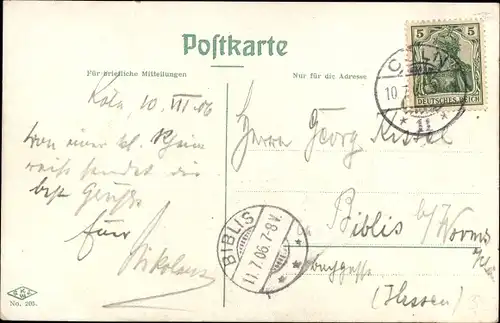 Postkarte
Für briefliche Mitteilungen
Nur für die Adresse
5 5
DEUTSCHES REICH
CÖLN
10.7.
11
Köln, 10 VII 06
Von einer kl. Rhein
reise sendet die
best Grüße
Nikolaus
Herrn Georg
Biblis b/Worms
(Hessen)
BIBLIS
11.7.06.7-8V.
No. 205.